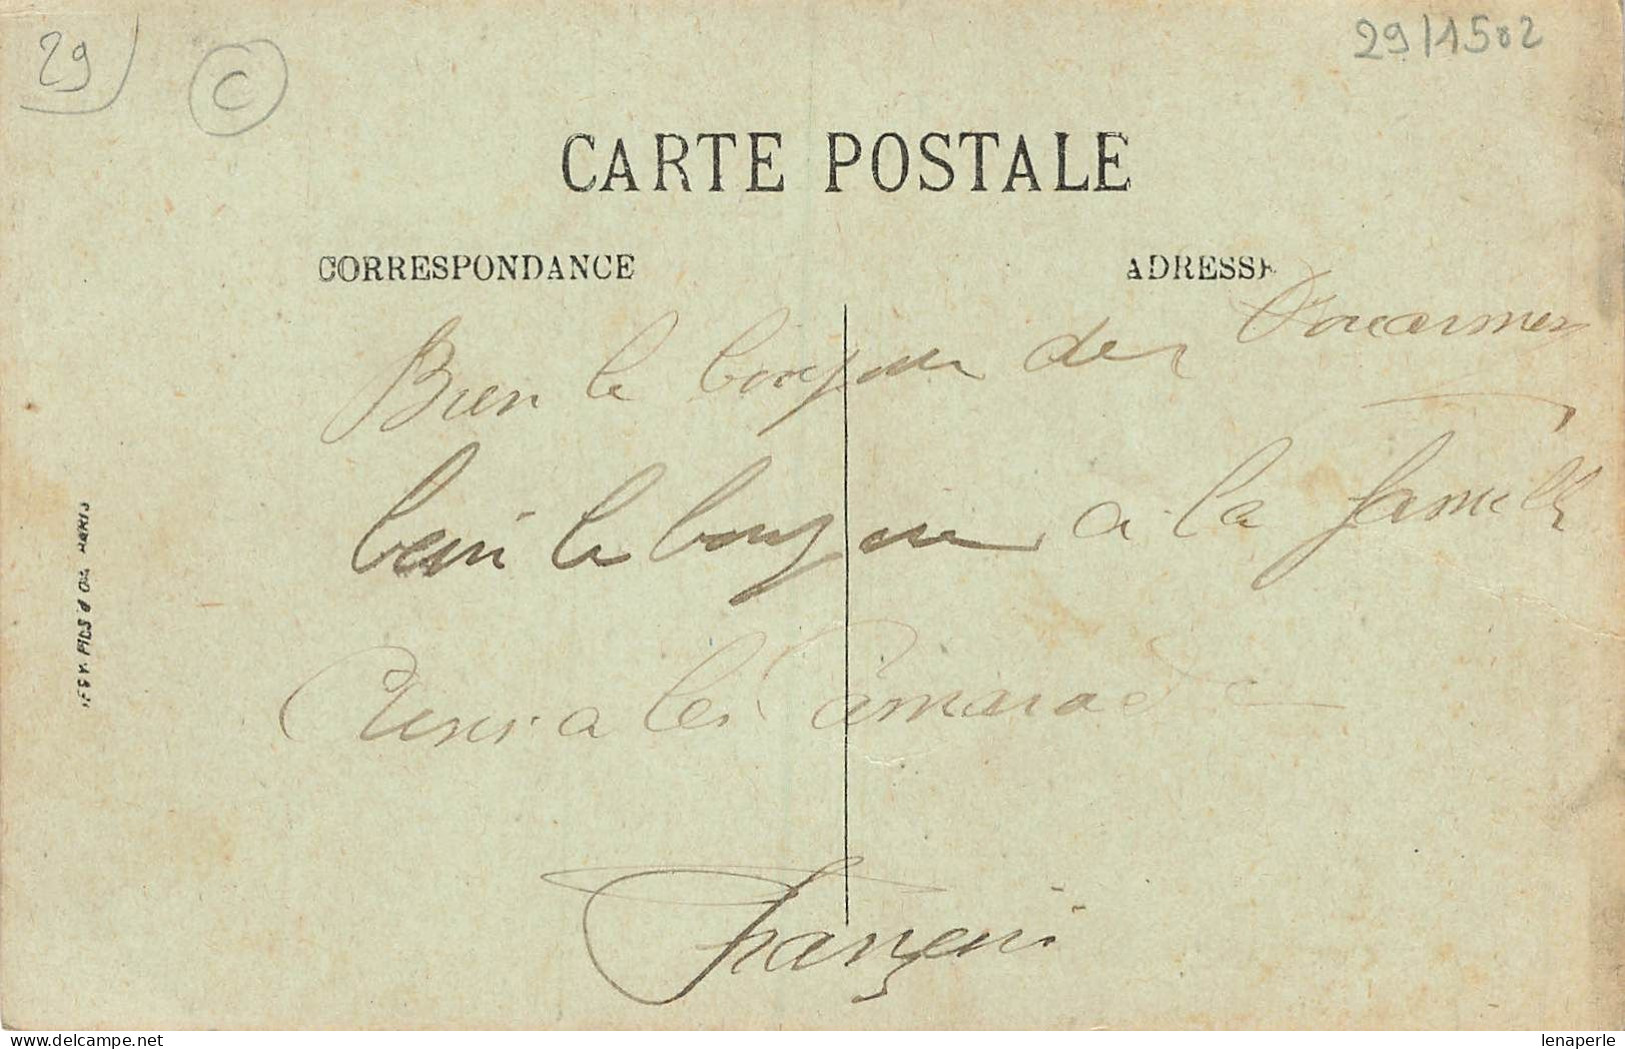 29
C
29/1502
CARTE POSTALE
CORRESPONDANCE
ADRESSE
Bien le bonjour de
bein le bonjour a la famille
a les Camarade
François
LEVY FILS & Cie PARIS
delcampe.net
lenaperle